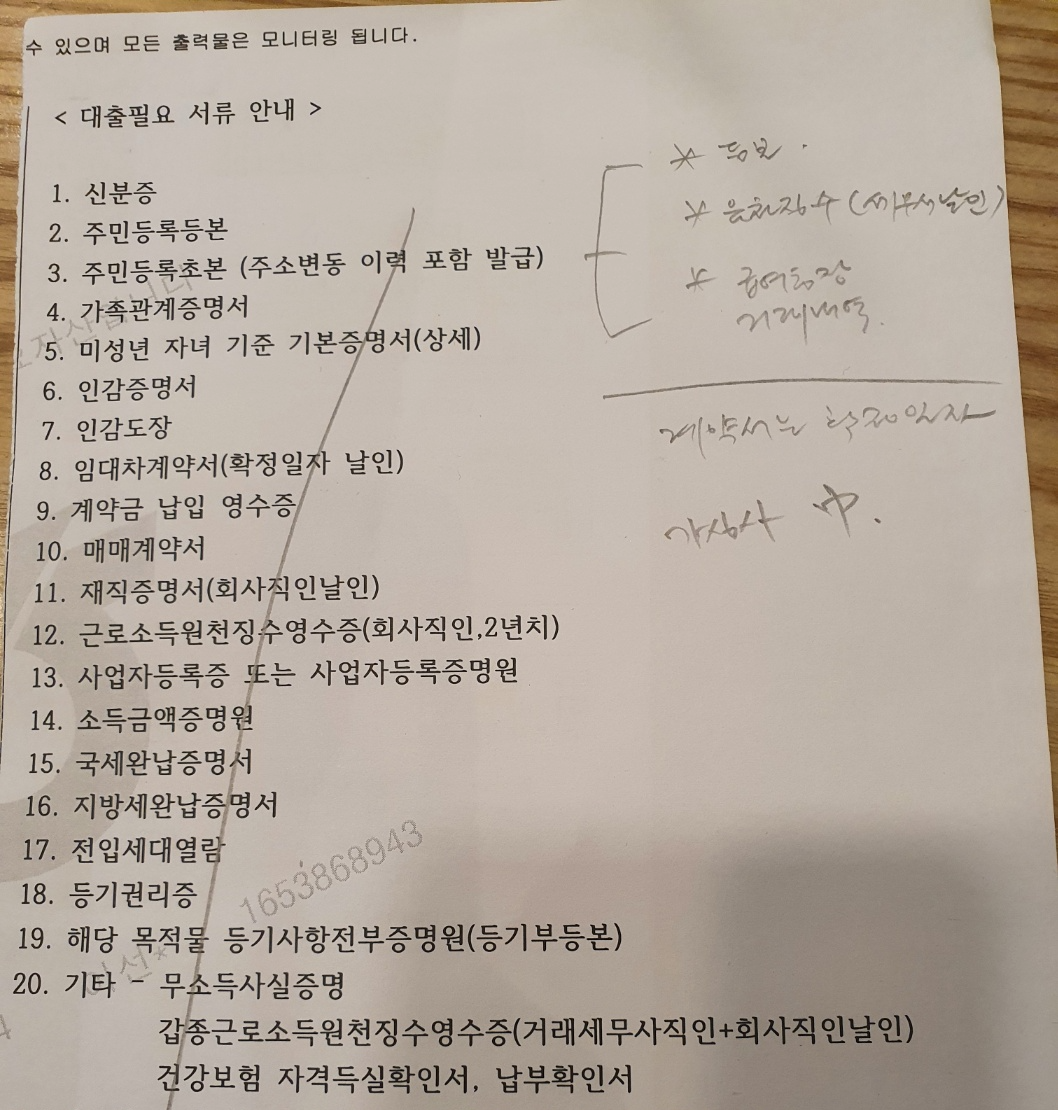 수 있으며 모든 출력물은 모니터링 됩니다.
< 대출필요 서류 안내 >
1. 신분증
2. 주민등록등본
3. 주민등록초본 (주소변동 이력 포함 발급)
4. 가족관계증명서
5. 미성년 자녀 기준 기본증명서(상세)
6. 인감증명서
7. 인감도장
8. 임대차계약서(확정일자 날인)
9. 계약금 납입 영수증
10. 매매계약서
11. 재직증명서(회사직인날인)
12. 근로소득원천징수영수증(회사직인,2년치)
13. 사업자등록증 또는 사업자등록증명원
14. 소득금액증명원
15. 국세완납증명서
16. 지방세완납증명서
17. 전입세대열람
18. 등기권리증
19. 해당 목적물 등기사항전부증명원(등기부등본)
20. 기타 - 무소득사실증명
갑종근로소득원천징수영수증(거래세무사직인+회사직인날인)
건강보험 자격득실확인서, 납부확인서
* 등본.
* 원천징수 (세무서날인)
* 급여통장
거래내역.
계약서는 확정일자
가심사 中.
1653868943